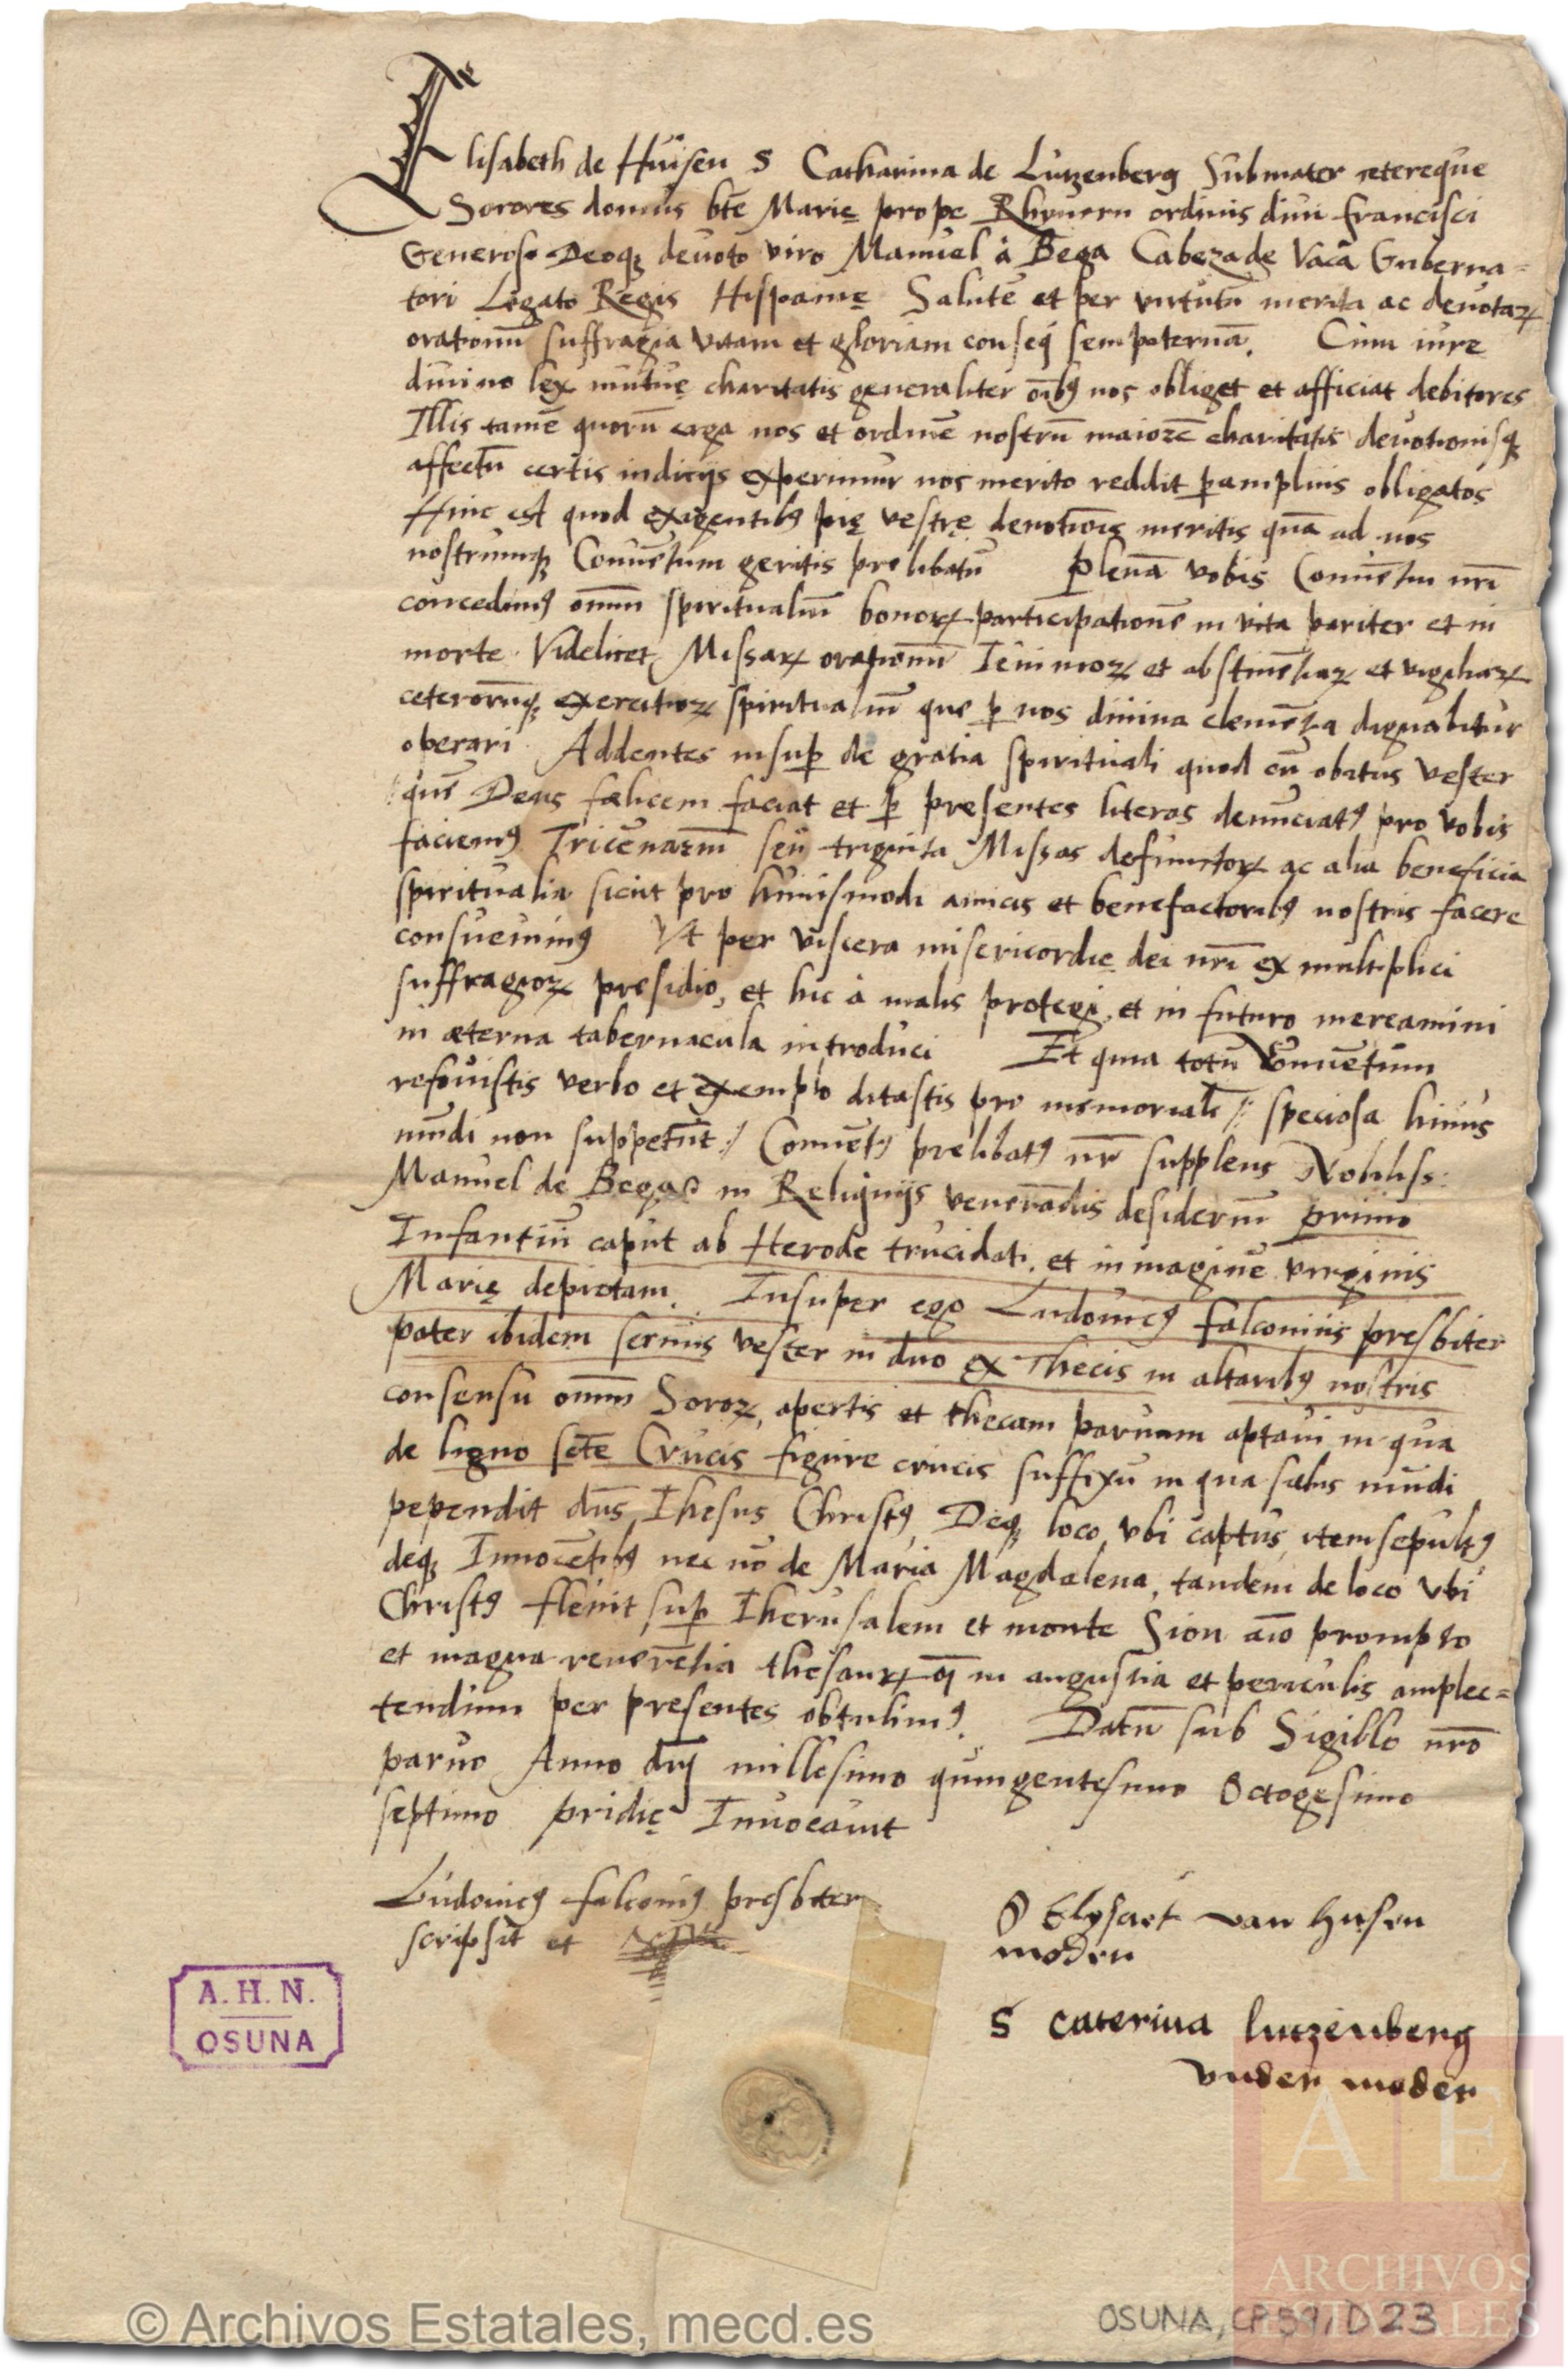 Elisabeth de Huisen S Catharina de Lutzenberg Submater ceterequе
Sorores domus btē Marię prope Rhenum ordinis diui francisci
Generoso Deoqꝫ deuoto viro Manuel à Bega Cabeza de Vaca Guberna=
tori Legato Regis Hispanię Salutē et per virtutū merita ac deuotaꝝ
orationū suffragia vitam et gloriam conseq̄ sempiternā. Cum iure
diuino lex mutuę charitatis generaliter oībꝰ nos obliget et afficiat debitores
Illis tamē quorū erga nos et ordinē nostrū maiorē charitatis deuotionisqꝫ
affectū certis indicijs experimur nos merito reddit ꝑamplius obligatos
Hinc est quod exigentibꝰ pię vestrę deuotiōis meritis quā ad nos
nostrumqꝫ Conuētum geritis prelibatū plenā vobis Conuētus nrī
concedimꝰ omniū spiritualiū bonoꝝ participationē in vita pariter et in
morte. Videlicet Missaꝝ orationū Ieiunioꝝ et abstinētiaꝝ et vigiliaꝝ
ceterorūqꝫ exercitioꝝ spiritualiū que ꝑ nos diuina clemētia dignabitur
operari. Addentes insuꝑ de gratia spirituali quod cū obitus vester
quē Deus fœlicem faciat et ꝑ presentes literas denūciatꝰ pro vobis
faciemꝰ Tricēnariū seu triginta Missas defunctoꝝ ac alia beneficia
spiritualia sicut pro huiusmodi amicis et benefactoribꝰ nostris facere
consueuimꝰ Vt per viscera misericordię dei nrī ex multiplici
suffragioꝝ presidio, et hic à malis protegi, et in futuro mereamini
in æterna tabernacula introduci Et quia totū Conuētum
refouistis verbo et exemplo ditastis pro memoriali /: speciosa huius
mūdi non suppetūt :/ Conuētꝰ prelibatꝰ nr̄ supplens Nobiliss:
Manuel de Begas in Reliquijs venerādis desideriū primo
Infantiū caput ab Herode trucidati, et in imaginē virginis
Marię depictam. Insuper ego Ludouicꝰ falconius presbiter
pater ibidem seruus vester in duo ex Thecis in altaribꝰ nostris
consensu omniū Soroꝝ, apertis et thecam paruam aptaui in qua
de ligno sctē Crucis figure crucis suffixū in qua salus mūdi
pependit dn̄s Ihesus Christꝰ Deqꝫ loco vbi captus, item sepultꝰ
deqꝫ Innocētibꝰ nec nō de Maria Magdalena, tandem de loco vbi
Christꝰ fleuit suꝑ Iherusalem et monte Sion aīo prompto
et magna reuerētia thesauꝝ in angustia et periculis amplec=
tendum per presentes obtulimꝰ. Datū sub Sigillo nrō
paruo Anno dn̄j millesimo quingentesimo Octogesimo
septimo pridię Inuocauit
Ludouicꝰ falconiꝰ presbiter
scripsit et
S Elysaet van husen
moder
S caterina lutzenberg
vnder moder
A. H. N.
OSUNA
A E
ARCHIVOS
ESTATALES
© Archivos Estatales, mecd.es
OSUNA, CP 59, D 23